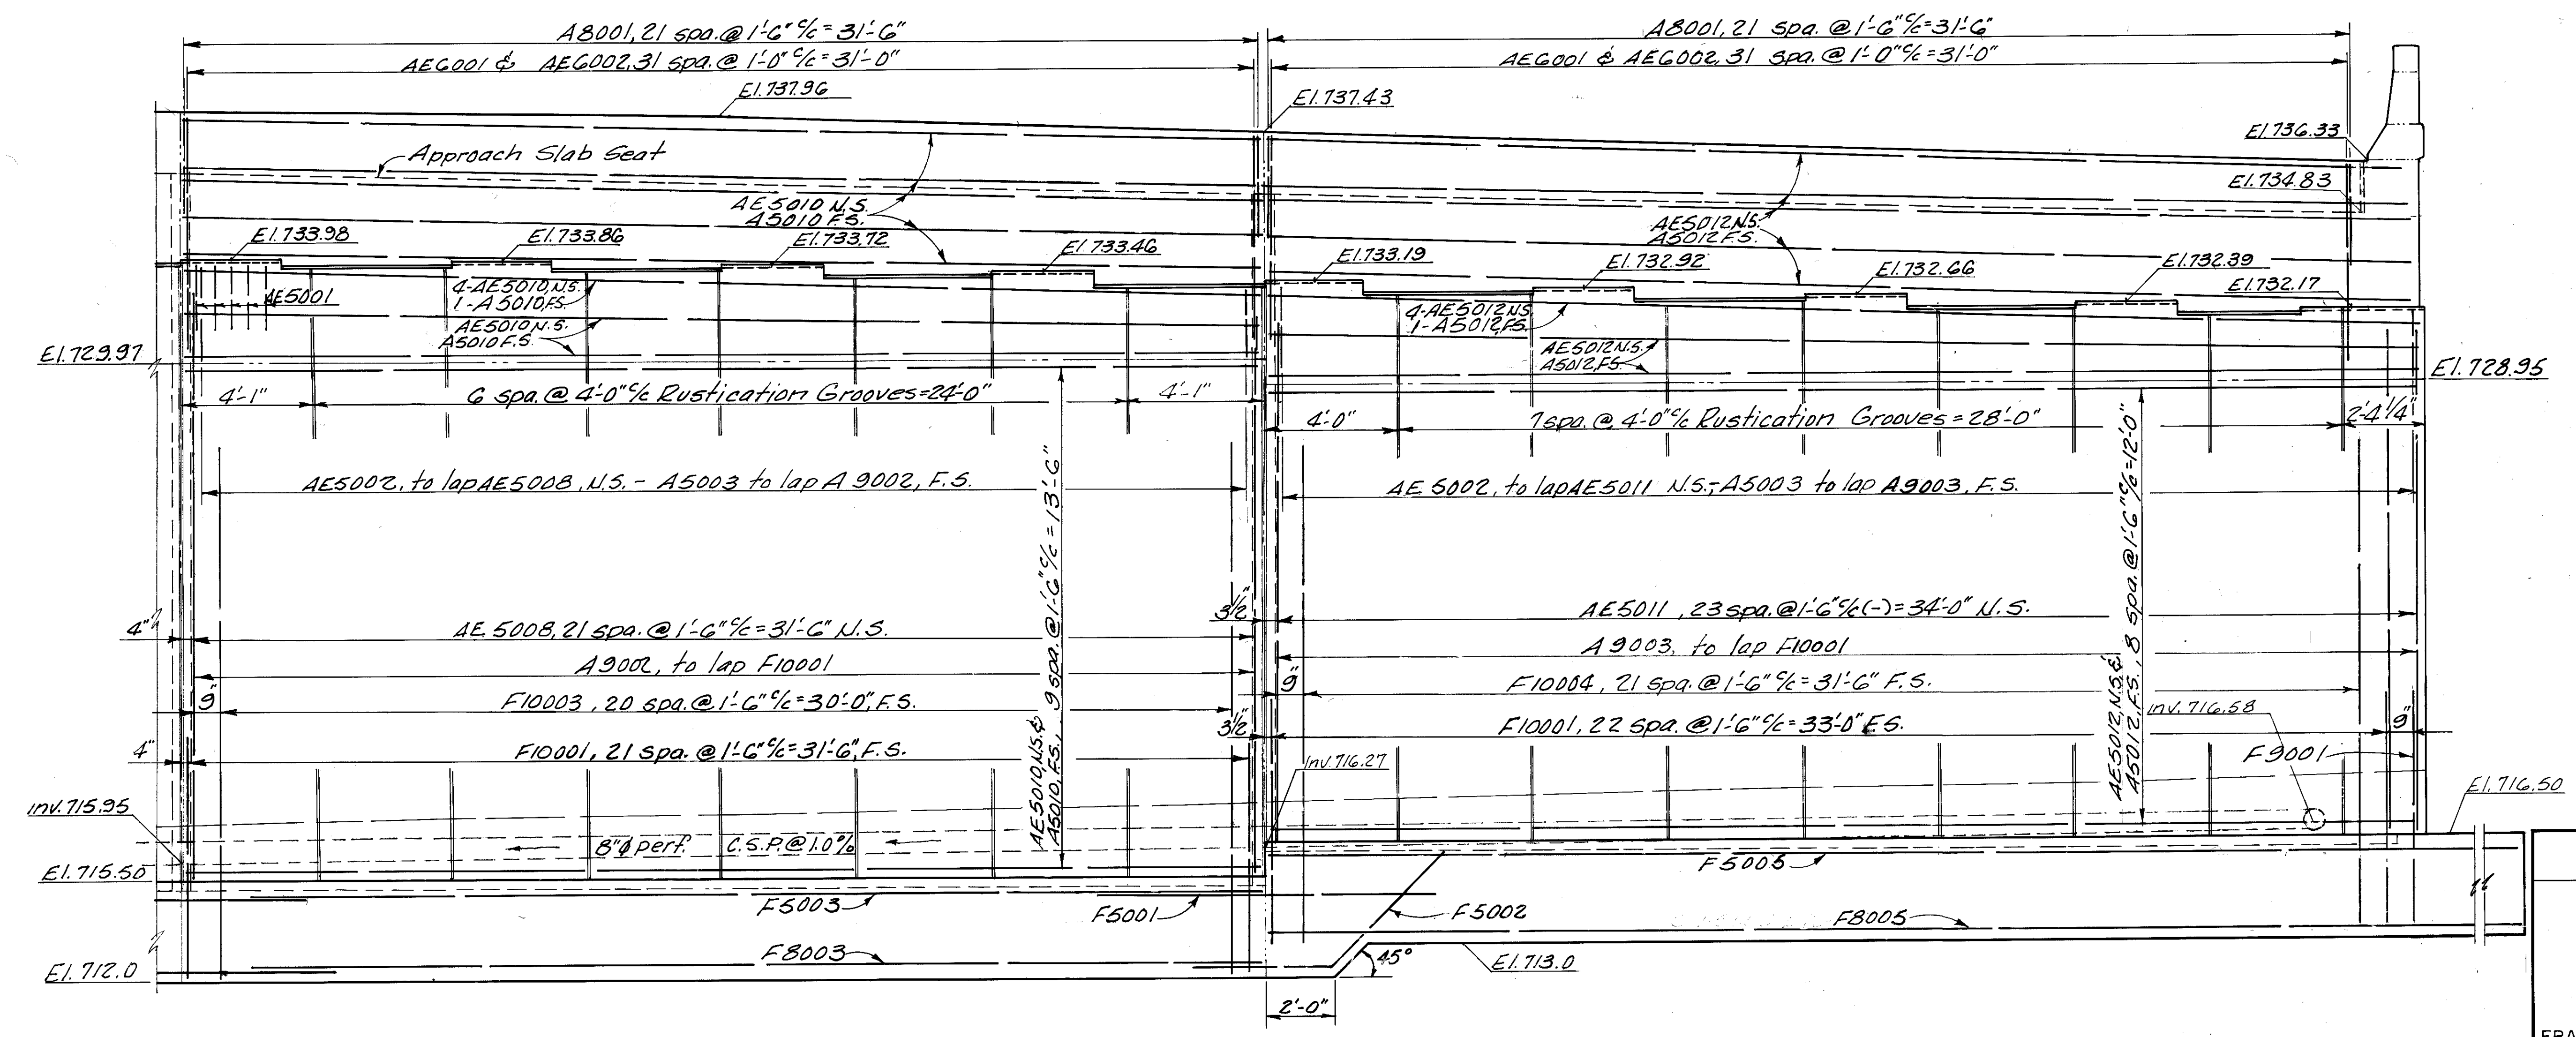 A8001, 21 spa. @ 1'-6" c/c = 31'-6"
A8001, 21 spa. @ 1'-6" c/c = 31'-6"
AE6001 & AE6002, 31 spa. @ 1'-0" c/c = 31'-0"
AE6001 & AE6002, 31 spa. @ 1'-0" c/c = 31'-0"
El. 737.96
El. 737.43
El. 736.33
Approach Slab Seat
El. 734.83
AE5010 N.S.
A5010 F.S.
AE5012 N.S.
A5012 F.S.
El. 733.98
El. 733.86
El. 733.72
El. 733.46
El. 733.19
El. 732.92
El. 732.66
El. 732.39
El. 732.17
AE5001
4-AE5010, N.S.
1-A5010, F.S.
AE5010 N.S.
A5010 F.S.
4-AE5012 N.S.
1-A5012, F.S.
AE5012 N.S.
A5012, F.S.
El. 729.97
El. 728.95
4'-1"
6 spa. @ 4'-0" c/c Rustication Grooves = 24'-0"
4'-1"
4'-0"
7 spa. @ 4'-0" c/c Rustication Grooves = 28'-0"
2'-4 1/4"
AE5002, to lap AE5008, N.S. - A5003 to lap A9002, F.S.
AE5002, to lap AE5011 N.S.; A5003 to lap A9003, F.S.
AE5010, N.S. &
A5010, F.S., 9 spa. @ 1'-6" c/c = 13'-6"
AE5012, N.S. &
A5012, F.S., 8 spa. @ 1'-6" c/c = 12'-0"
4"
AE5008, 21 spa. @ 1'-6" c/c = 31'-6" N.S.
3 1/2"
AE5011, 23 spa. @ 1'-6" c/c (-) = 34'-0" N.S.
A9002, to lap F10001
A9003, to lap F10001
9"
F10003, 20 spa. @ 1'-6" c/c = 30'-0", F.S.
9"
F10004, 21 spa. @ 1'-6" c/c = 31'-6" F.S.
4"
F10001, 21 spa. @ 1'-6" c/c = 31'-6", F.S.
3 1/2"
F10001, 22 spa. @ 1'-6" c/c = 33'-0" F.S.
Inv. 716.58
9"
F9001
Inv. 716.27
El. 716.50
Inv. 715.95
8"ϕ perf. C.S.P. @ 1.0%
El. 715.50
F5003
F5001
F5002
F5005
F8005
F8003
El. 712.0
45°
El. 713.0
2'-0"